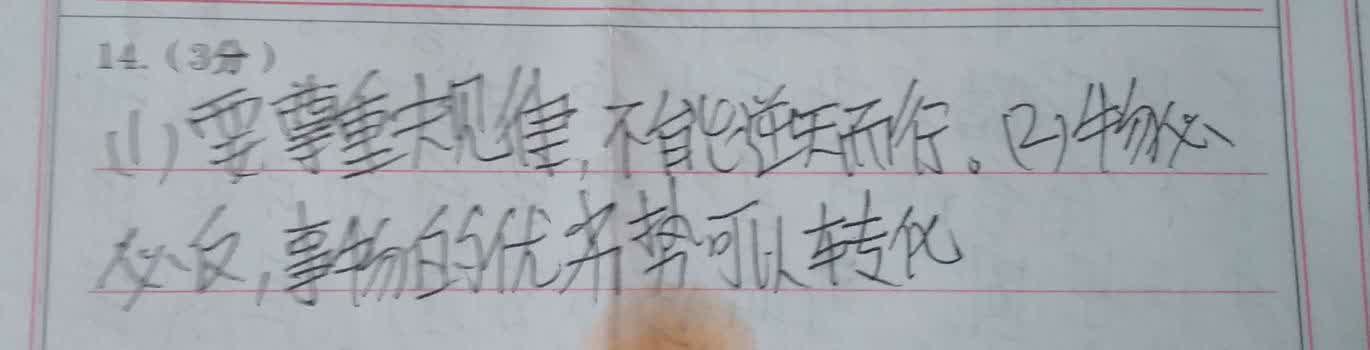 14.（3分）
(1)要尊重规律,不能逆天而行。(2)物必
必反,事物的优劣势可以转化